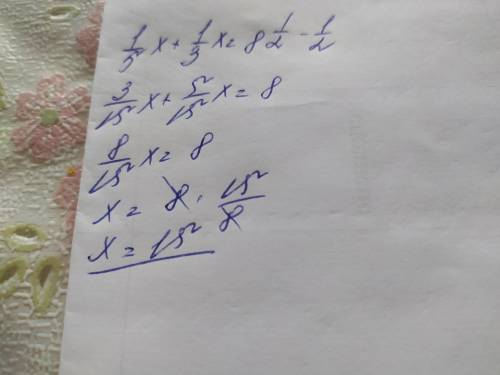 1/5 x + 1/3 x = 8 1/2 - 1/2
3/15 x + 5/15 x = 8
8/15 x = 8
x = 8 · 15/8
x = 15